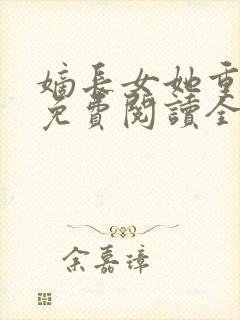 嫡長女她重
免費閱讀全
余嘉璋